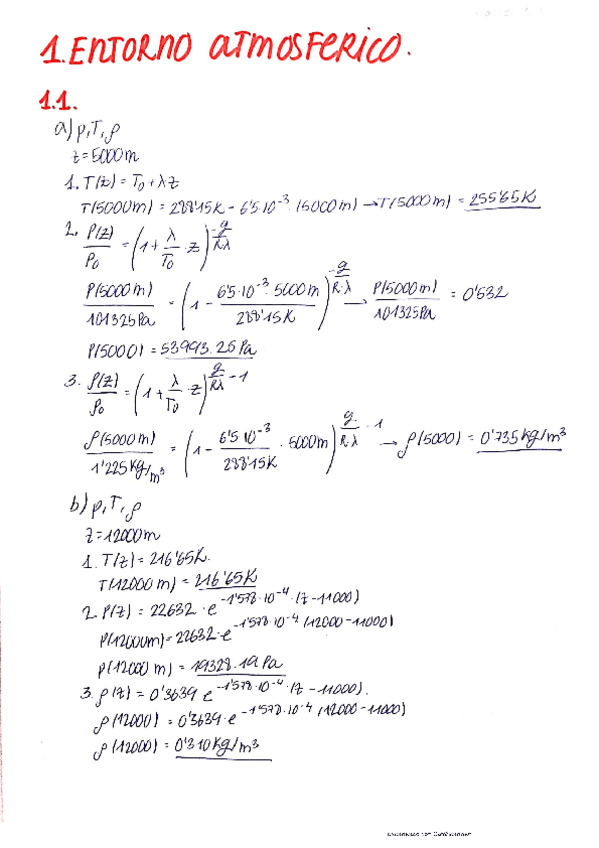 1. ENTORNO ATMOSFERICO.
1.1.
a) p, T, ρ
z = 5000m
1. T(z) = T₀ + λz
T(5000m) = 288'15K - 6'5·10⁻³ · (5000m) → T(5000m) = 255'65K
2. P(z)/P₀ = (1 + λ/T₀ · z)^(-g/Rλ)
P(5000m)/101325Pa = (1 - 6'5·10⁻³ · 5000m/288'15K)^(-g/R·λ) → P(5000m)/101325Pa = 0'532
P(5000) = 53993.25 Pa
3. ρ(z)/ρ₀ = (1 + λ/T₀ · z)^(g/Rλ - 1)
ρ(5000m)/1'225 kg/m³ = (1 - 6'5 10⁻³/288'15K · 5000m)^(g/R·λ - 1) → ρ(5000) = 0'735 kg/m³
b) p, T, ρ
z = 12000m
1. T(z) = 216'65K.
T(12000 m) = 216'65K
2. P(z) = 22632 · e^(-1'578·10⁻⁴ · (z - 11000))
P(12000m) = 22632 · e^(-1'578·10⁻⁴ (12000 - 11000))
P(12000 m) = 19328.19 Pa
3. ρ(z) = 0'3639 e^(-1'578·10⁻⁴ · (z - 11000)).
ρ(12000) = 0'3639 · e^(-1'578·10⁻⁴ (12000 - 11000))
ρ(12000) = 0'310 kg/m³